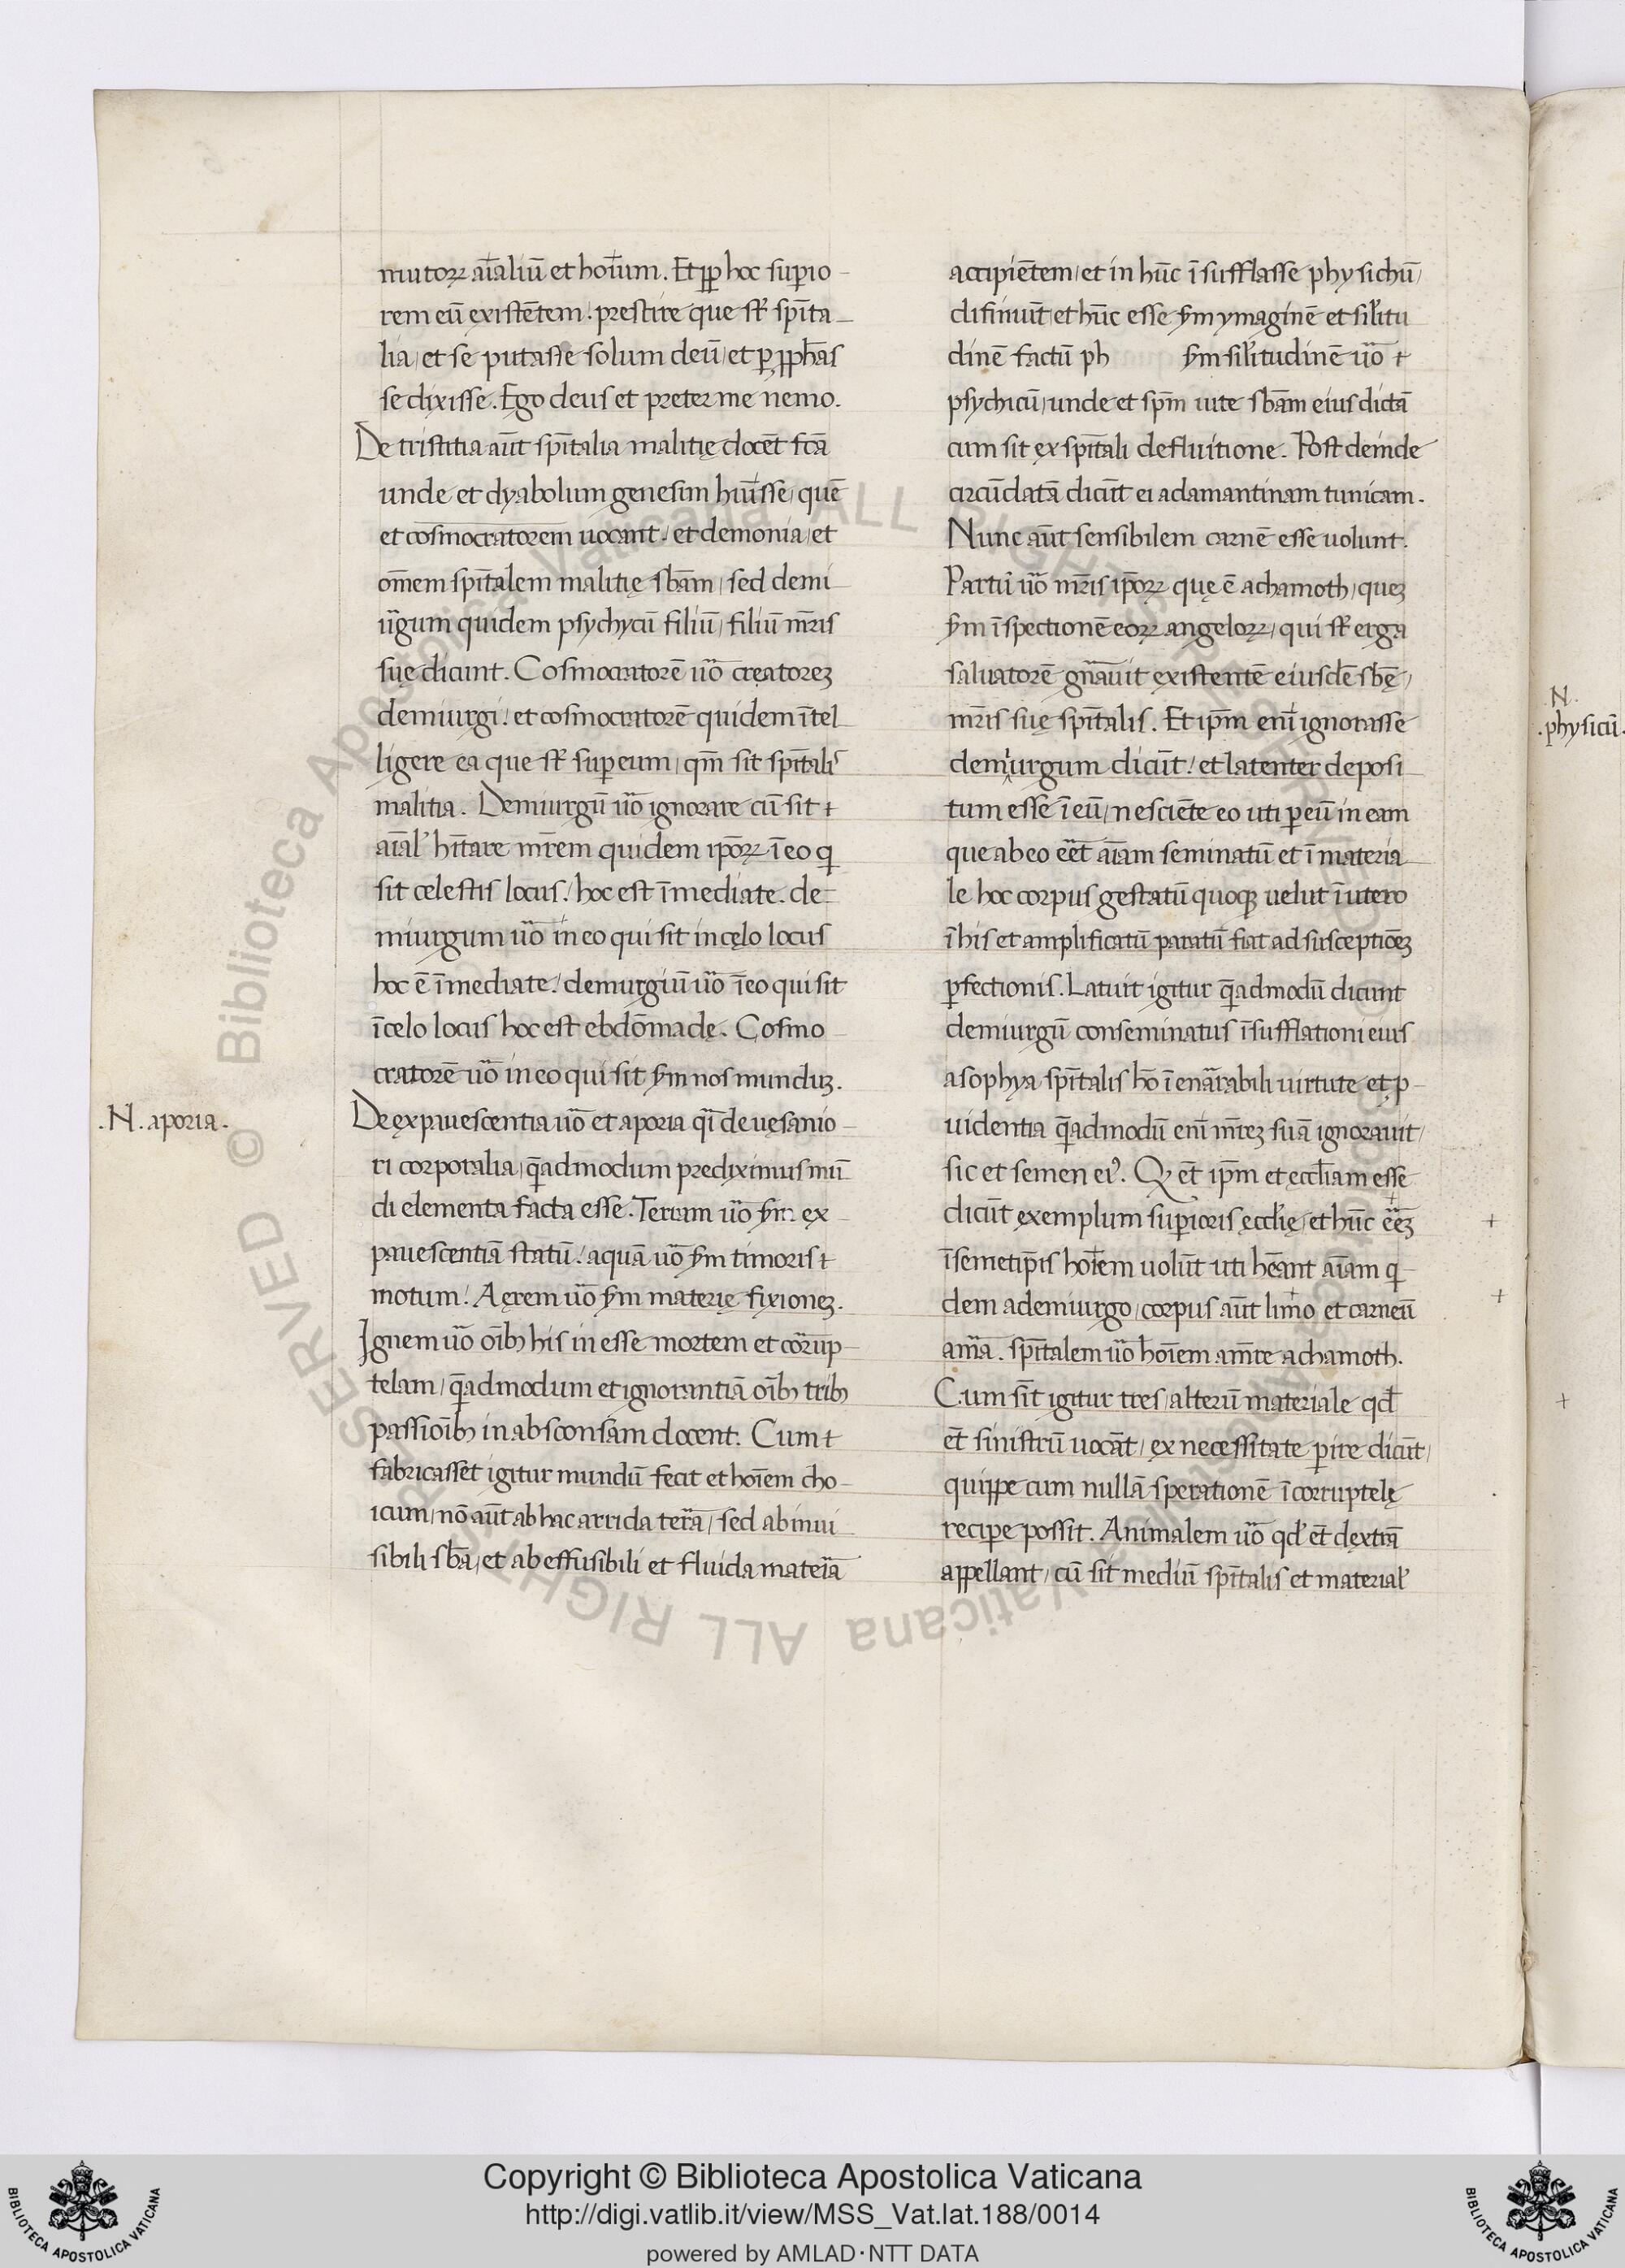 mutoꝝ aı̄aliū et hoı̄um. Et ꝓp hoc supio-
rem eū existētem. prestire que st̄ spīta-
lia, et se putasse solum deū, et ꝑ ꝓph̄as
se dixisse. Ego deus et preter me nemo.
De tristitia aūt spītalia malitię docēt fc̄a
unde et dyabolum genesim hiūsse, quē
et cosmocratorem uocant, et demonia, et
om̄em spītalem malitię sb̄am, sed demi
ūgum quidem psychycū filiū, filiū mr̄is
suę dicunt. Cosmocratorē ūo creatorez
demiurgi. et cosmocratorē quidem ītel
ligere ea que st̄ sup eum, qm̄ sit spītalis
malitia. Demiurgū ūo ignorare cū sit
aı̄al' hītare mr̄em quidem ipōꝝ ī eo q
sit celestis locus. hoc est īmediate. de-
miurgum ūo in eo qui sit in cęlo locus
hoc ē īmediate. demurgiū ūo ī eo qui sit
ī celo locus hoc est ebdōmadę. Cosmo
cratorē ūo in eo qui sit sm̄ nos mundū.
De expauescentia ūo et aporia qī de uęsanio-
.N. aporia.
ri corporalia, q̄admodum prediximus mū
di elementa facta esse. Terram ūo sm̄ ex-
pauescentiā statū. aquā ūo sm̄ timoris
motum. Aęrem ūo sm̄ materię fixionez.
Ignem ūo oı̄b; his inesse mortem et cor̄up-
telam, q̄admodum et ignorantiā oı̄b; trib;
passioı̄b; in absconsam docent. Cum
fabricasset igitur mundū fecit et hoı̄em cho-
icum, nō aūt ab hac arrida ter̄a, sed ab inui
sibili sb̄a, et ab effusibili et fluida mater̄ia
accipiētem, et in hūc īsufflasse physichū,
difiniūt, et hūc esse sm̄ ymaginē et sil'itu
dinē factū ph sm̄ sil'itudinē ūo
psychicū, unde et spm̄ uite sb̄am eius dictā
cum sit ex spītali defluitione. Post deinde
circūdatā dicūt ei adamantinam tunicam.
Nunc aūt sensibilem carnē esse uolunt.
Partū ūo mr̄is ipōꝝ quę ē achamoth, quez
sm̄ īspectionē eoꝝ angeloꝝ, qui st̄ erga
saluatorē gn̄auit existentē eiusdē sb̄ę,
mr̄is suę spītalis. Et ipm̄ enī ignorasse
demiurgum dicūt. et latenter deposi
tum esse ī eū, nesciēte eo uti p eū in eam
que ab eo eēt aı̄am seminatū et ī materia
le hoc corpus gestatū quoq; uelut ī utero
ī his et amplificatū paratū fiat ad susceptiōez
pfectionis. Latuit igitur q̄admodū dicunt
demiurgū conseminatus īsufflationi eius
a sophya spītalis hō ī enar̄abili uirtute et ꝓ-
uidentia q̄admodū enī mr̄ez suā ignorauit,
sic et semen ei⁹. Q; ēt ipm̄ et eccl'iam esse
dicūt exemplum supioris ęccl'ię, et hūc eēz
ī semetipīs hoı̄em uolūt uti hēant aı̄am q
dem a demiurgo, corpus aūt limo et carneū
am̄a. spītalem ūo hoı̄em am̄re achamoth.
Cum sīt igitur tres, alterū materiale qd̄
ēt sinistrū uocāt, ex necessitate pire dicūt,
quippe cum nullā sperationē ī corruptelę
recipe possit. Animalem ūo qd' ēt dextrā
appellant, cū sit mediū spītalis et material'
.N.
.physicū.
Copyright © Biblioteca Apostolica Vaticana
http://digi.vatlib.it/view/MSS_Vat.lat.188/0014
powered by AMLAD·NTT DATA